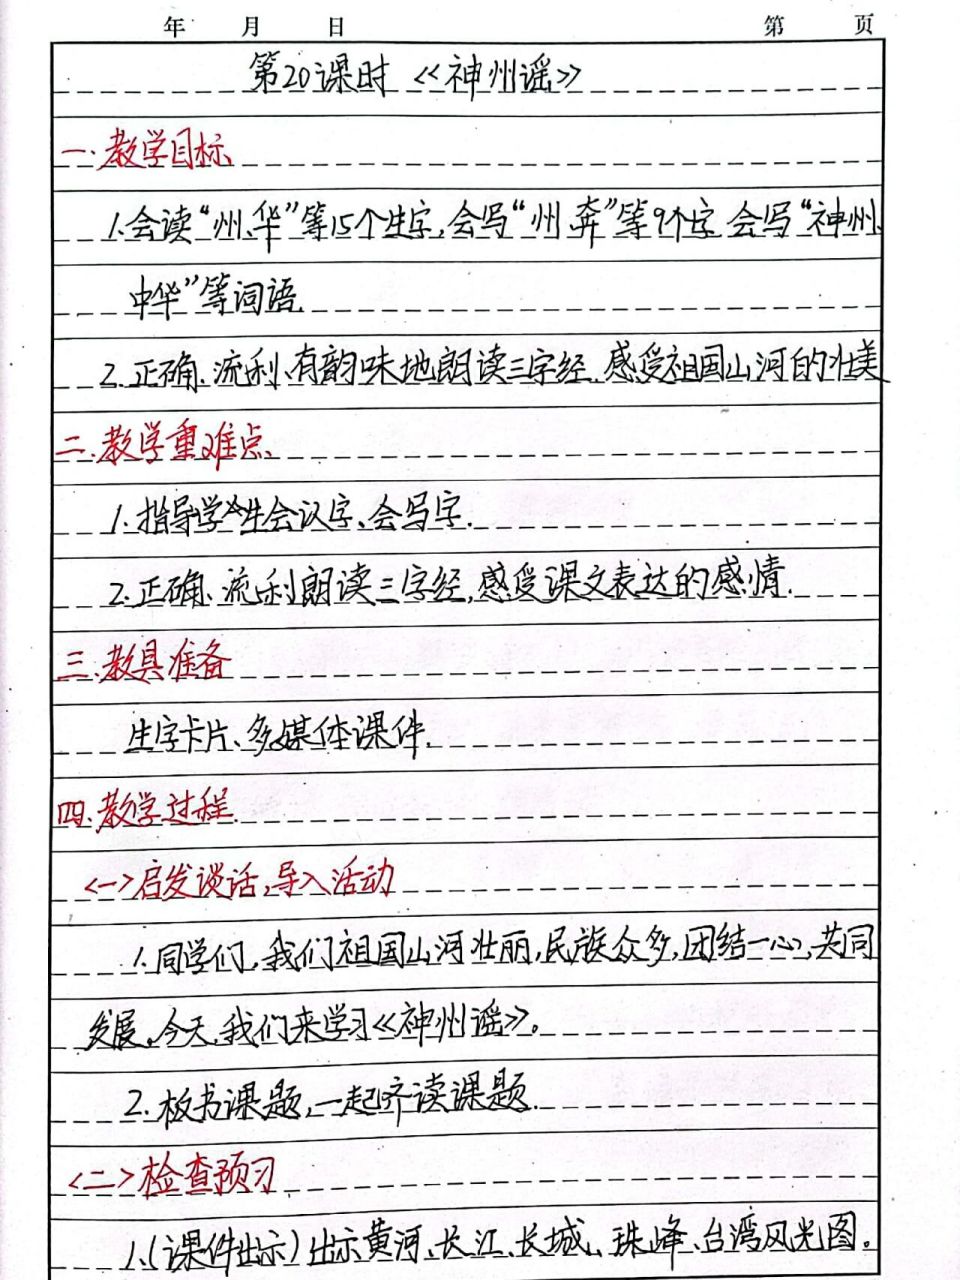 年 月 日 第 页
第20课时 《神州谣》
一.教学目标
1.会读“州、华”等15个生字,会写“州、奔”等9个字,会写“神州、
中华”等词语.
2.正确、流利、有韵味地朗读三字经.感受祖国山河的壮美
二.教学重难点
1.指导学生会认字、会写字.
2.正确、流利朗读三字经,感受课文表达的感情.
三.教具准备
生字卡片、多媒体课件.
四.教学过程
<一>启发谈话,导入活动
1.同学们,我们祖国山河壮丽,民族众多,团结一心,共同
发展。今天,我们来学习《神州谣》。
2.板书课题,一起齐读课题.
<二>检查预习
1.(课件出示)出示黄河、长江、长城、珠峰、台湾风光图。